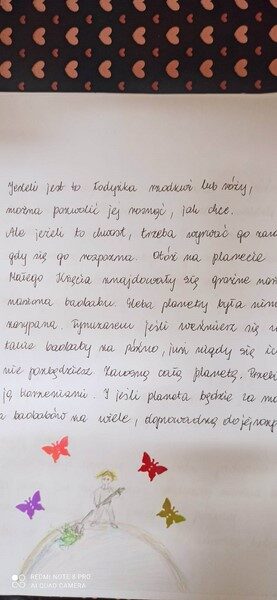 Jeżeli jest to łodyżka rzodkwi lub róży,
można pozwolić jej rosnąć, jak chce.
Ale jeżeli to chwast, trzeba wyrwać go
gdy się go rozpozna. Otóż na planecie
Małego Księcia znajdowały się groźne
nasiona baobabu. Gleba planety była
zasypana. Tymczasem jeśli weźmiesz się
baobaby za późno, już nigdy się
nie pozbędziesz. Zarosną całą planetę.
ją korzeniami. I jeśli planeta będzie za
a baobabów za wiele, doprowadzą do jej
REDMI NOTE 8 PRO
AI QUAD CAMERA